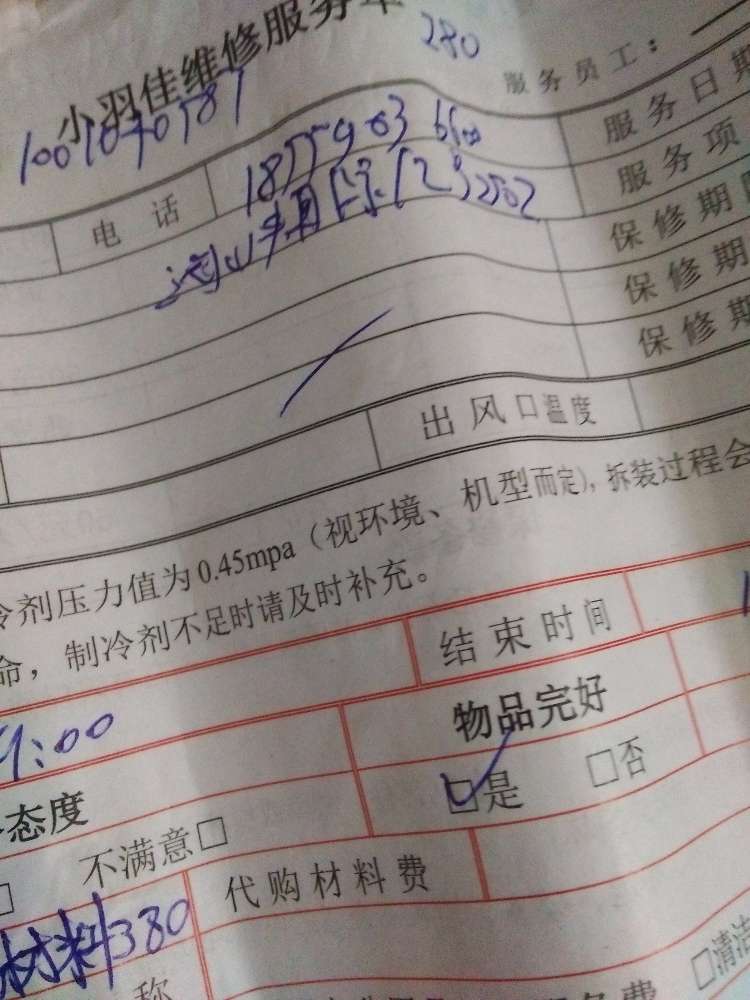 小羽佳维修服务单
280
服务员工：
1001040787
服务日期
电话
服务项
保修期
保修期
保修期
出风口温度
冷剂压力值为0.45mpa（视环境、机型而定），拆装过程会
命，制冷剂不足时请及时补充。
结束时间
9:00
物品完好
态度
是 □否
不满意□
代购材料费
材料380
称
□清洁